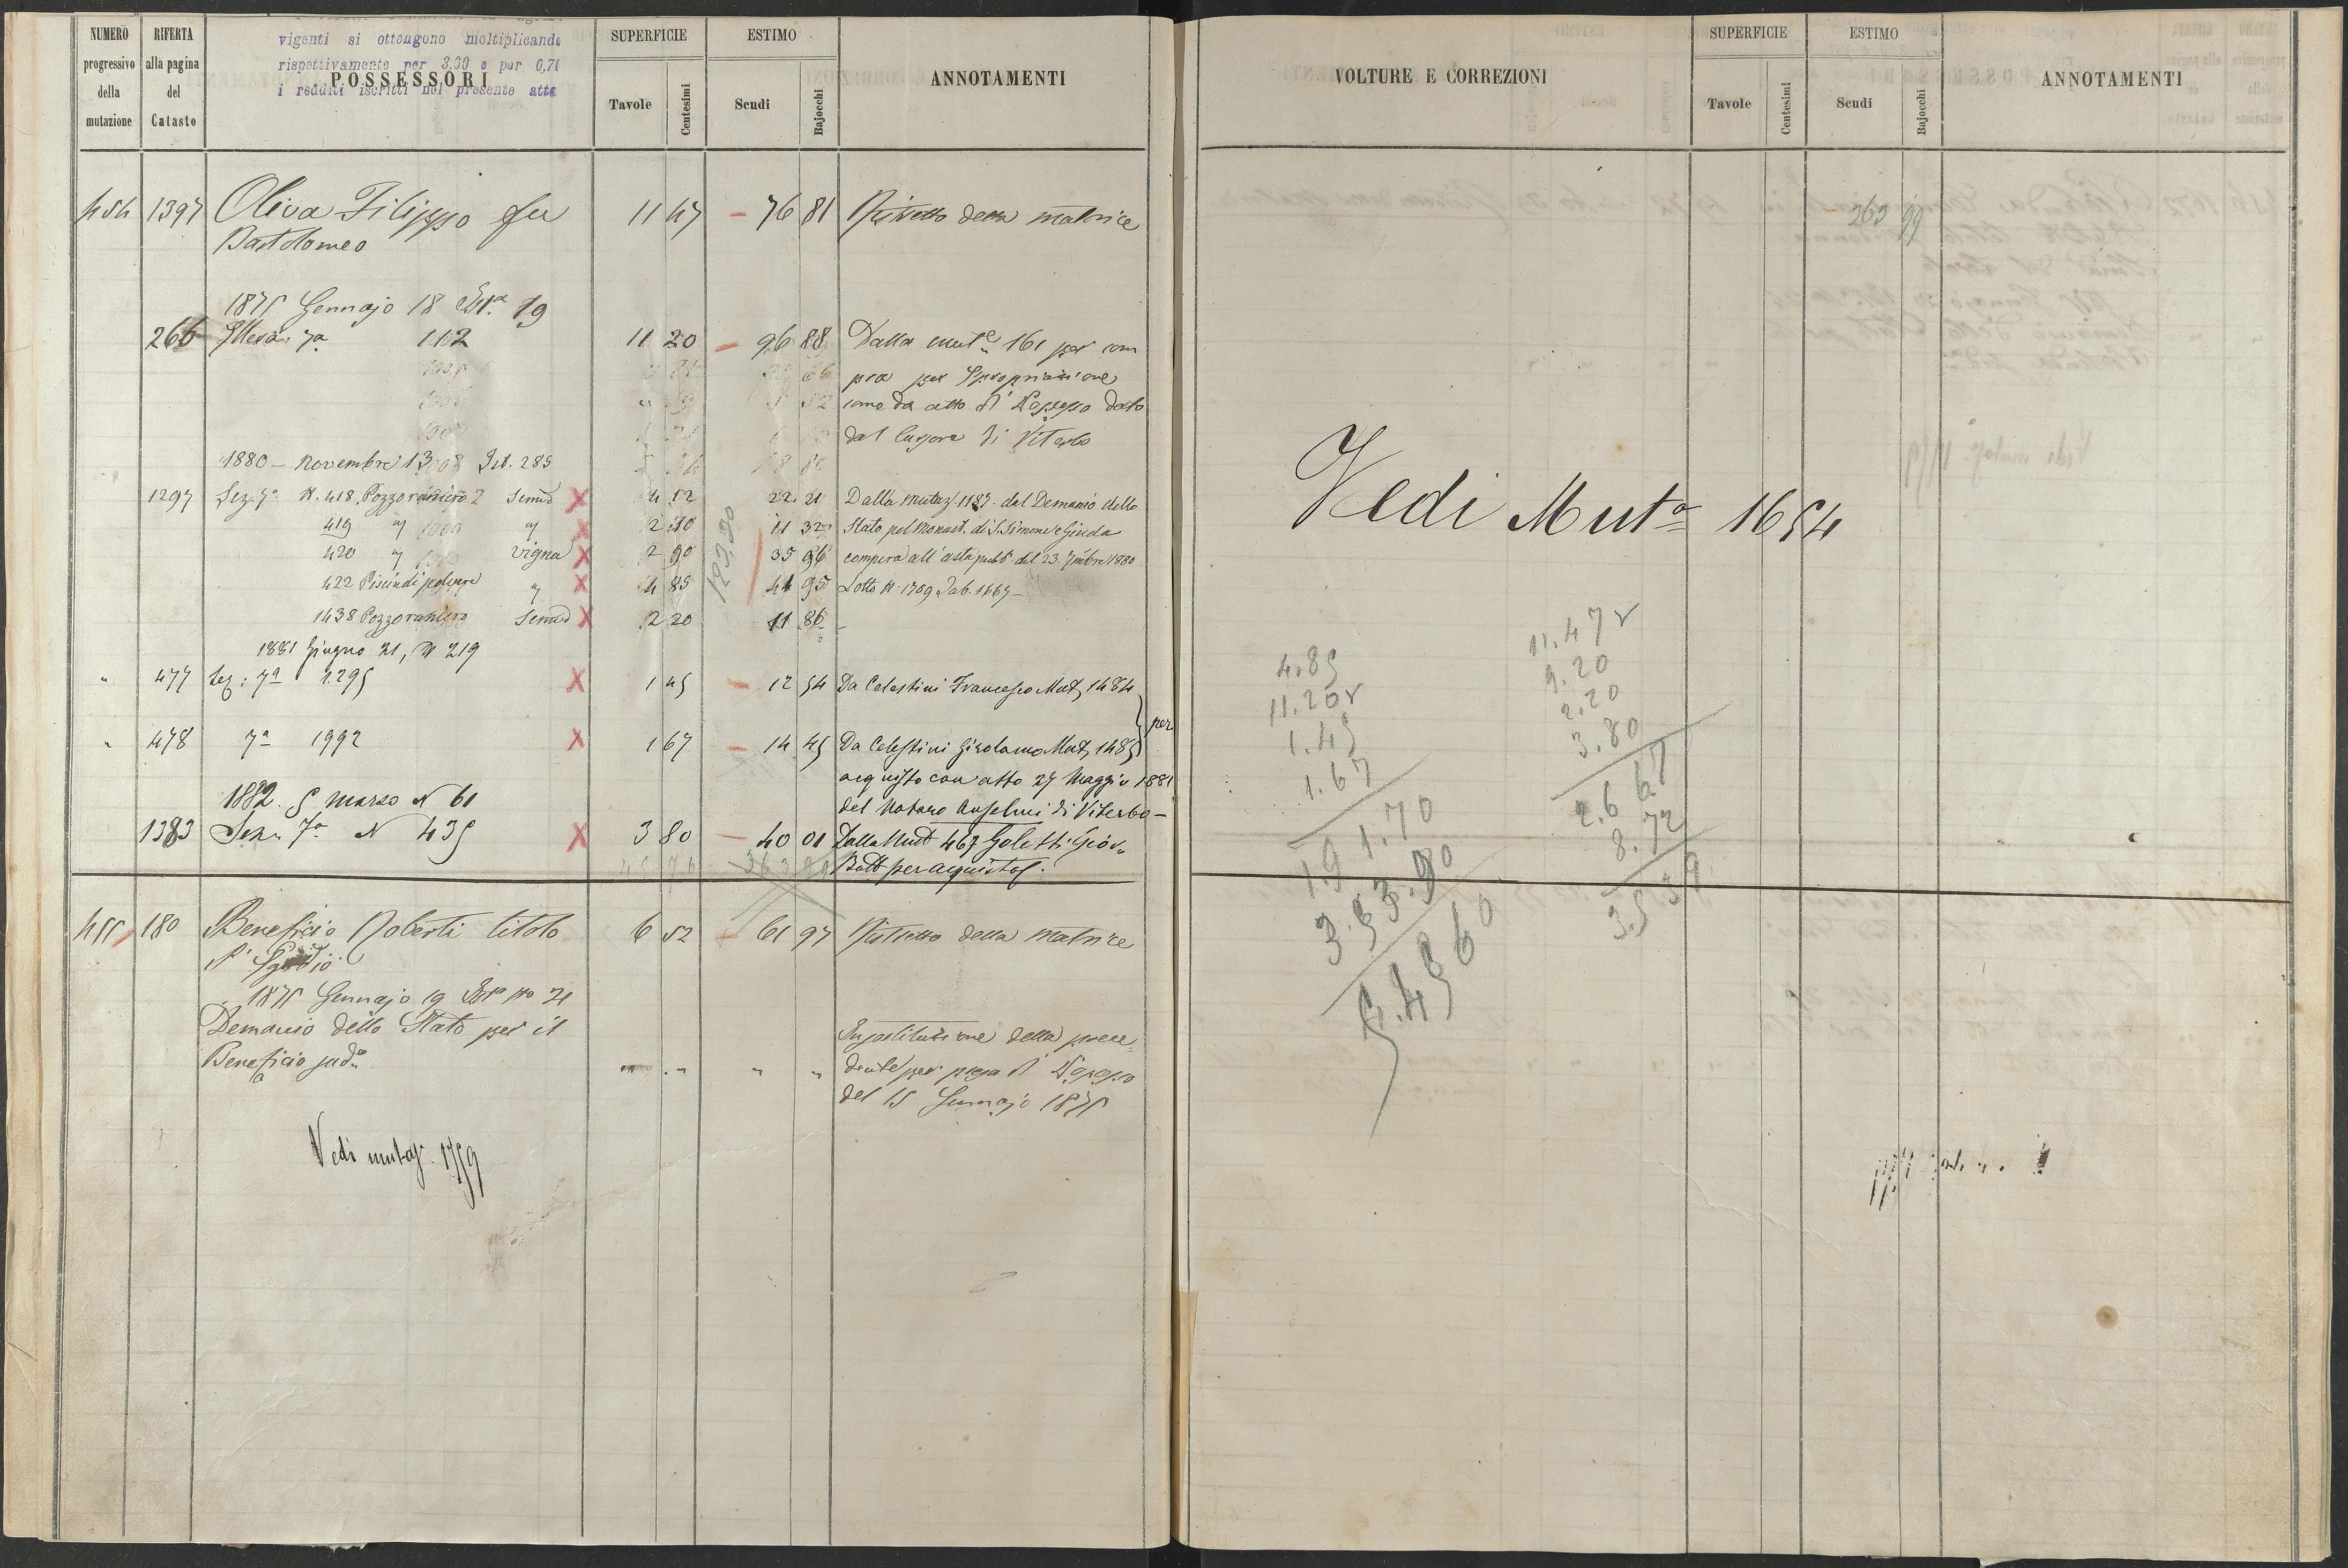 NUMERO progressivo della mutazione
RIFERTA alla pagina del Catasto
viganti si ottengono moltiplicando
rispettivamente per 3,30 e per 0,70
i redditi iscritti nel presente atto
POSSESSORI
SUPERFICIE
Tavole Centesimi
ESTIMO
Scudi Bajocchi
ANNOTAMENTI
454 1397 Oliva Filippo fu 11 47 – 76 81 Ristretto della matrice
Bartolomeo
1875 Gennajo 18 19
266 7a 112 11 20 – 96 88 Dalla mut.e 161 per com
pra per Spropriazione
come da atto di Possesso dato
dal Cursore di Viterbo
1880 – Novembre 13 285
1297 Sez. 7a N. 418 Pozzoraniero Semo X 4 12 22 21 Dalla mutaz. 1187 dal Demanio dello
419 " " X 2 10 11 32 Stato pel Monast. di S. Simone e Giuda
420 " vigna X 2 90 35 96 compera all'asta pubb. del 23 7mbre 1880
422 Piscin di polvere " X 4 85 44 95 Lotto N. 1709 Tab. 1667 –
1438 Pozzoraniero Semo X 2 20 11 86 –
183,20
1881 Giugno 21, N 219
" 477 Sez: 7a 1295 X 1 45 – 12 54 Da Celestini Francesco Mut. 1484
per
" 478 7a 1992 X 1 67 – 14 45 Da Celestini Girolamo Mut. 1485
acquisto con atto 27 Maggio 1881
del Notaro Anselmi di Viterbo –
1882. 5 marzo N 61
1383 Sezn 7a N 435 X 3 80 – 40 01 Dalla Mut 467 Goletti Giov.
Batt per acquisto
455 180 Beneficio Roberti titolo 6 52 – 61 97 Ristretto della matrice
S. Egidio
1875 Gennajo 19 No 21
Demanio dello Stato per il
Beneficio sud.o " " " " In sostituzione della prece
dente per presa di Possesso
del 15 Gennajo 1875
Vedi mutaz. 1759
VOLTURE E CORREZIONI
SUPERFICIE
Tavole Centesimi
ESTIMO
Scudi Bajocchi
ANNOTAMENTI
263 99
Vedi Muta 1654
4.85
11.20
1.45
1.67
19 1.70
11.47
9.20
2.20
3.80
26 67
8.72
35 39